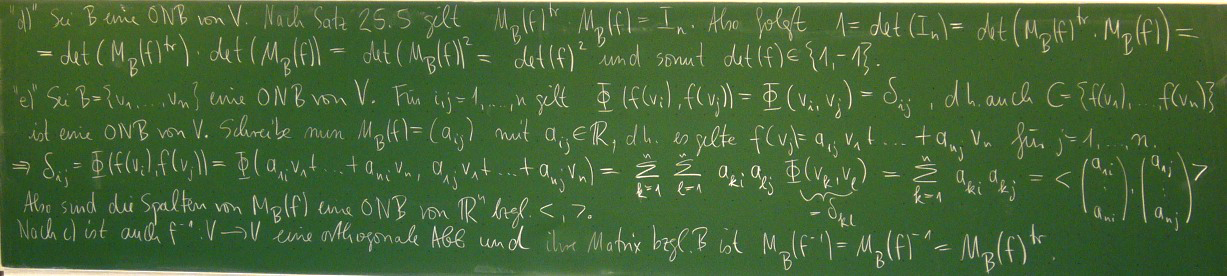 "d)" Sei B eine ONB von V. Nach Satz 25.5 gilt M_B(f)^tr M_B(f) = I_n. Also folgt 1 = det(I_n) = det(M_B(f)^tr · M_B(f)) =
= det(M_B(f)^tr) · det(M_B(f)) = det(M_B(f))² = det(f)² und somit det(f) ∈ {1,-1}.
"e)" Sei B = {v_1,...,v_n} eine ONB von V. Für i,j = 1,...,n gilt Φ(f(v_i), f(v_j)) = Φ(v_i, v_j) = δ_ij, d.h. auch C = {f(v_1),... f(v_n)}
ist eine ONB von V. Schreibe nun M_B(f) = (a_ij) mit a_ij ∈ ℝ, d.h. es gelte f(v_j) = a_1j v_1 + ... + a_nj v_n für j = 1,...,n.
⇒ δ_ij = Φ(f(v_i), f(v_j)) = Φ(a_1i v_1 + ... + a_ni v_n, a_1j v_1 + ... + a_nj v_n) = Σ_{k=1}^n Σ_{l=1}^n a_ki a_lj Φ(v_k, v_l) = Σ_{k=1}^n a_ki a_kj = < (a_1i ⋮ a_ni), (a_1j ⋮ a_nj) >
= δ_kl
Also sind die Spalten von M_B(f) eine ONB von ℝ^n bzgl. < , >.
Nach c) ist auch f^-1: V → V eine orthogonale Abb und ihre Matrix bzgl. B ist M_B(f^-1) = M_B(f)^-1 = M_B(f)^tr.